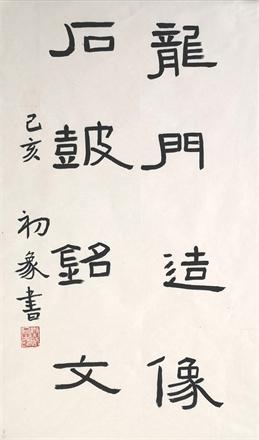 龍門造像
石皷銘文
己亥 初象書